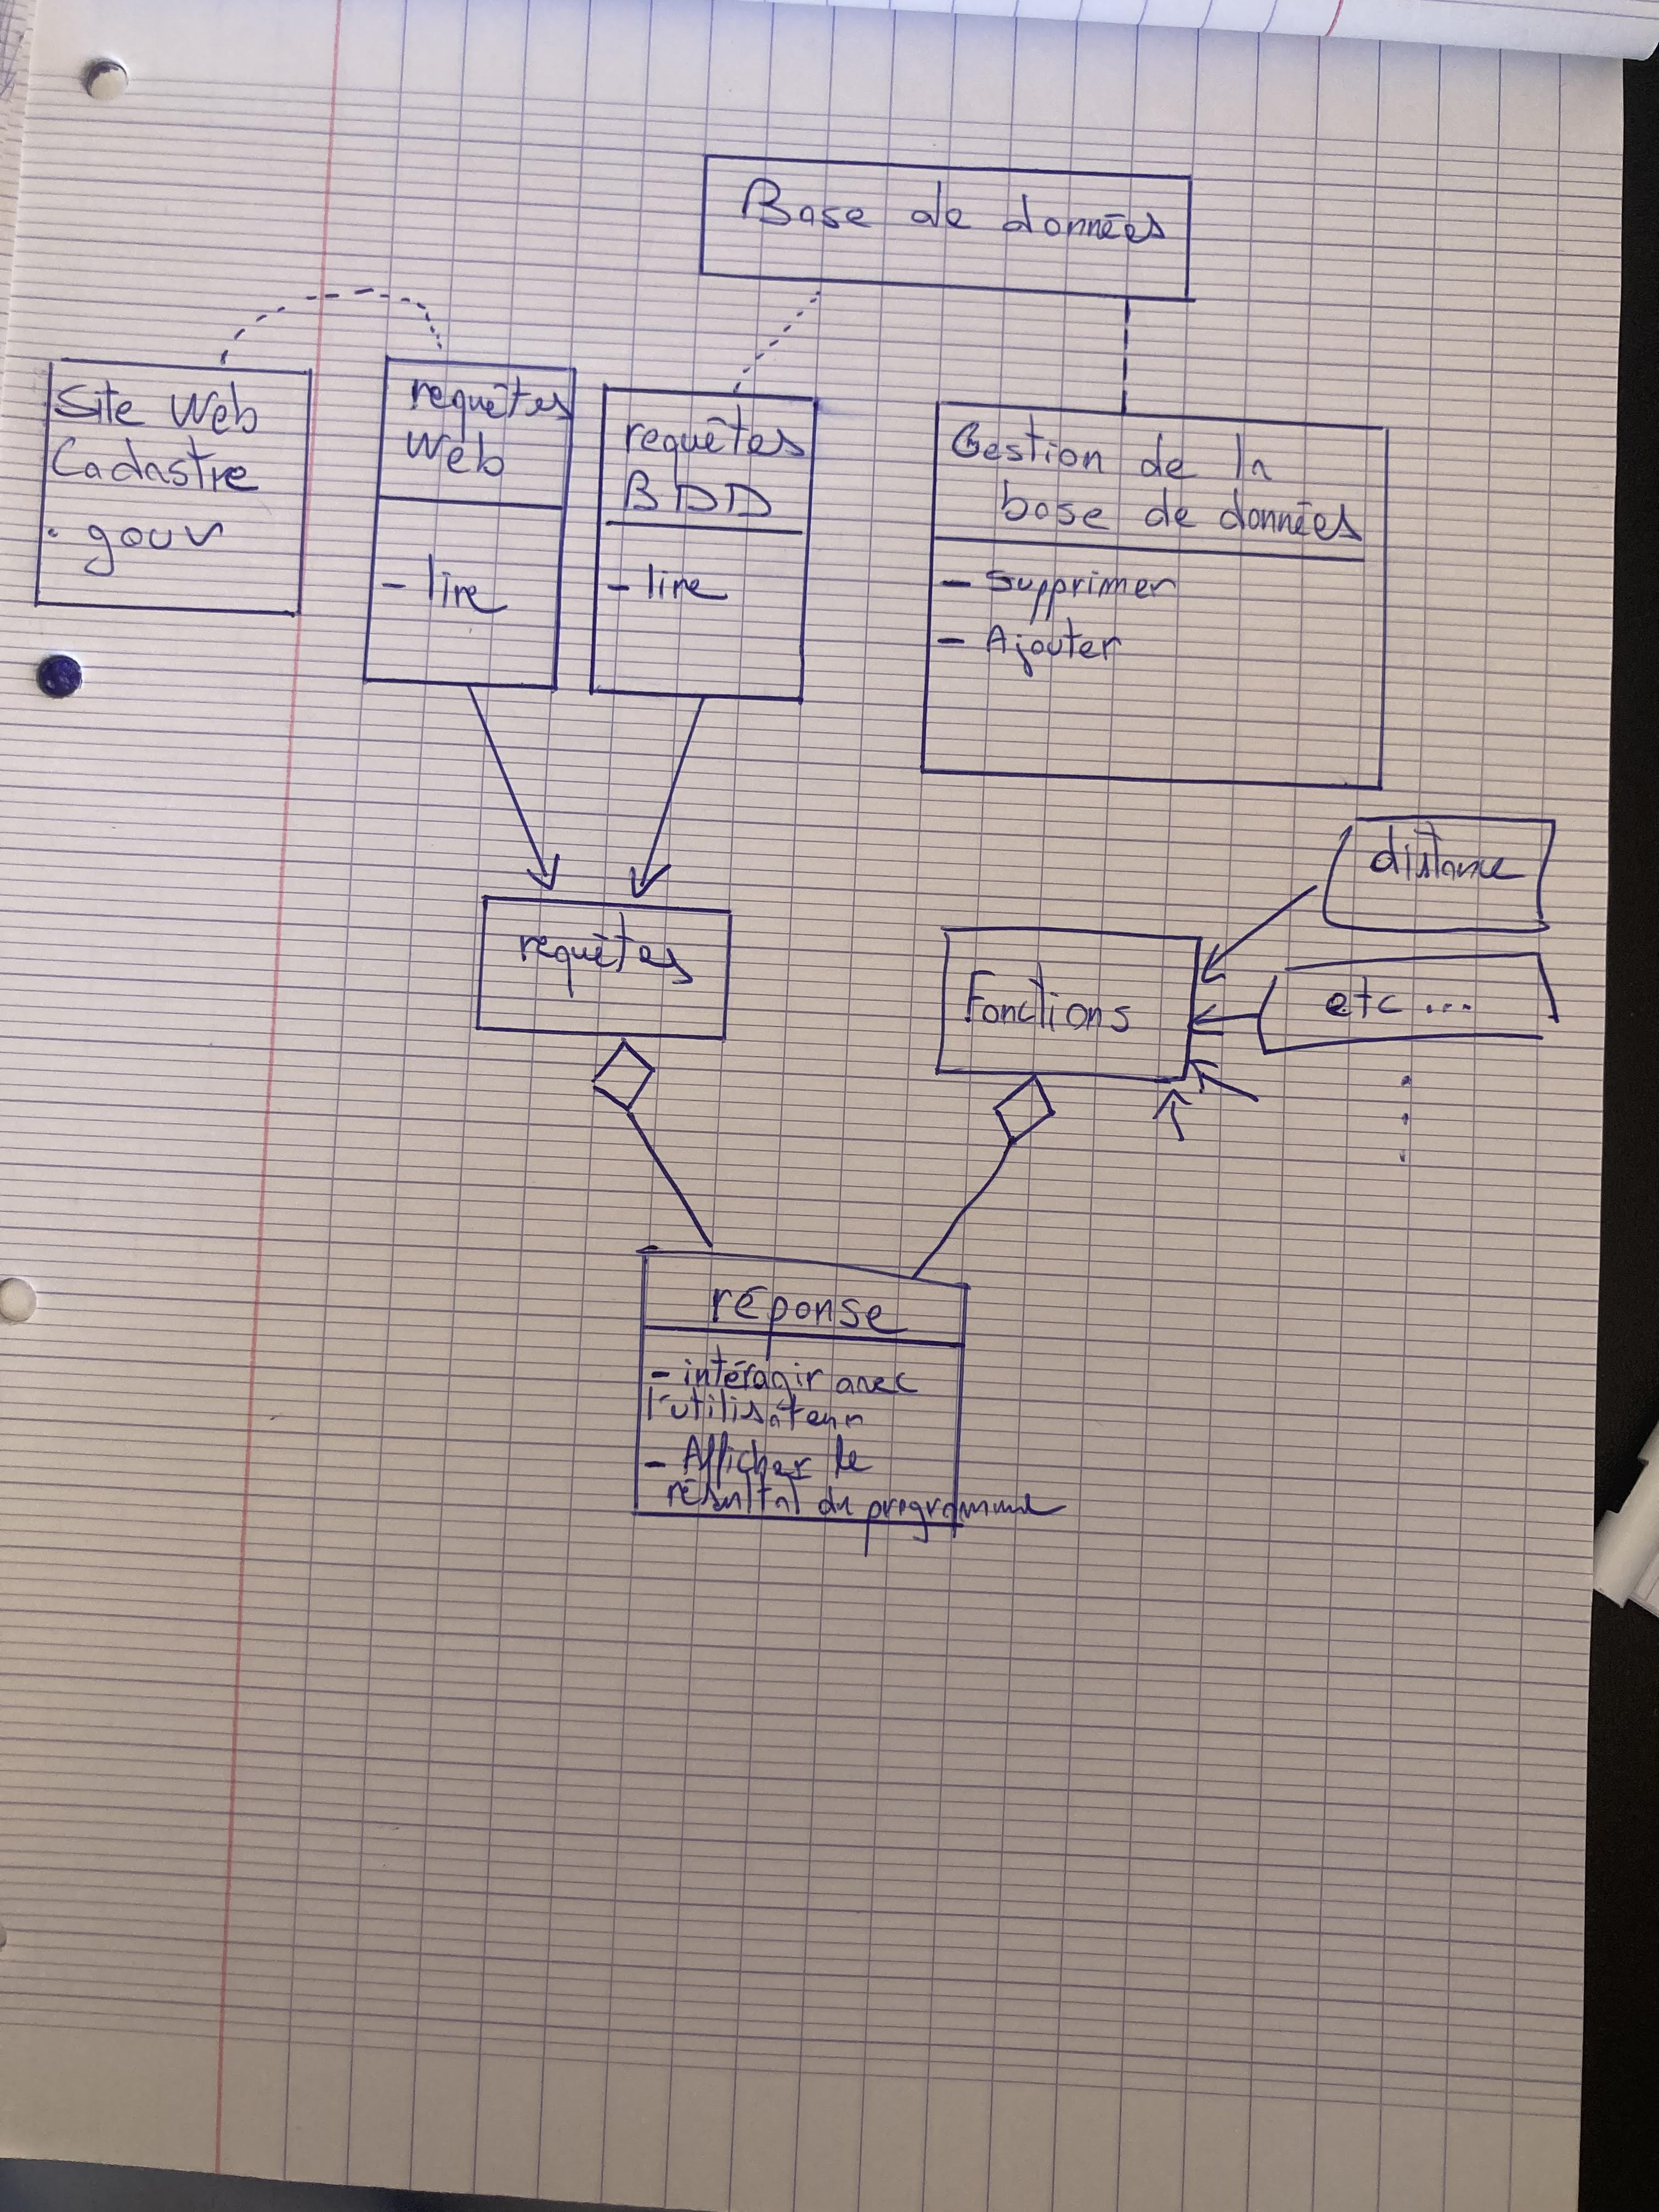 Base de données
Site Web
Cadastre
. gouv
requêtes
Web
- lire
requêtes
BDD
- lire
Gestion de la
base de données
- Supprimer
- Ajouter
distance
requêtes
Fonctions
etc ...
réponse
- intéragir avec
l'utilisateur
- Afficher le
résultat du programme